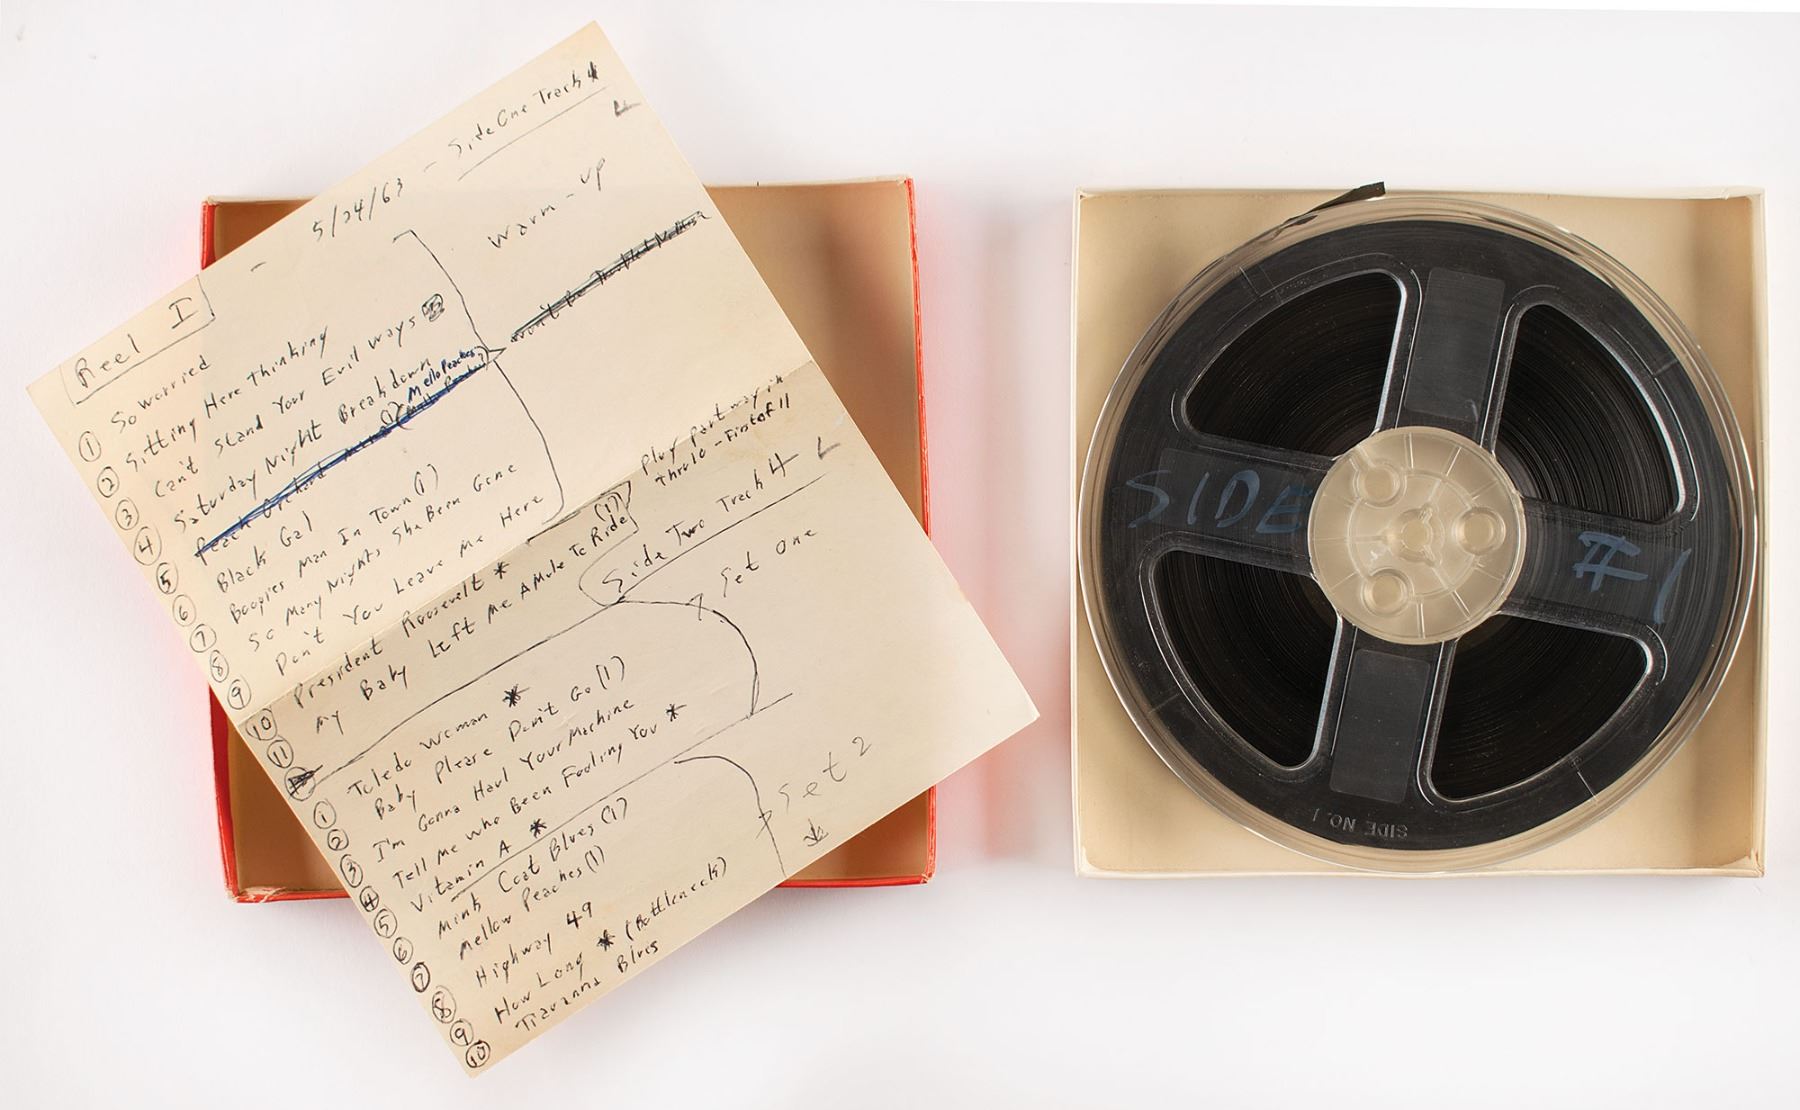 Reel I
5/24/63 - Side One Track 4
Warm-up
① So worried
② Sitting Here thinking
③ Can't stand Your Evil Ways
④ Saturday Night Breakdown
⑤ Peach Orchard Mama (1) (Mello Peaches)
⑥ Black Gal
⑦ Boogies Man In Town (1)
⑧ So Many Nights She Been Gone
⑨ Don't You Leave Me Here
⑩ President Roosevelt *
⑪ My Baby Left Me A Mule To Ride (1)
Play Part way in
Thru 10 - First of 11
Side Two Track 4
Set One
① Toledo Woman *
② Baby Please Don't Go (1)
③ I'm Gonna Haul Your Machine
④ Tell Me Who Been Fooling You *
⑤ Vitamin A *
Set 2
⑥ Mink Coat Blues (1)
⑦ Mellow Peaches (1)
⑧ Highway 49
⑨ How Long * (Bottleneck)
⑩ Tiavanna Blues
SIDE #1
SIDE NO. 1